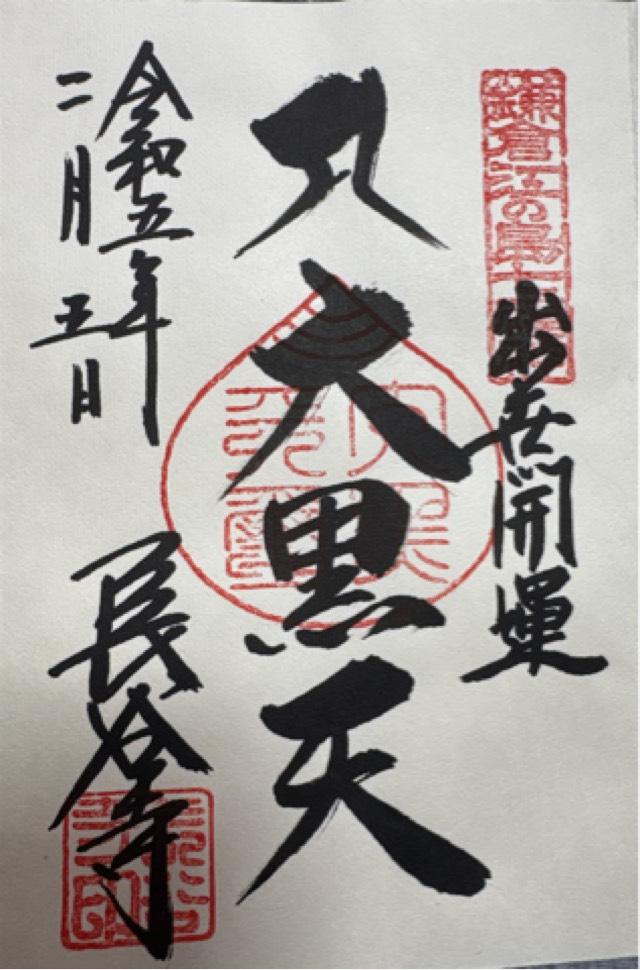 鎌倉江の島七
出世開運
大黒天
令和五年
二月五日
長谷寺